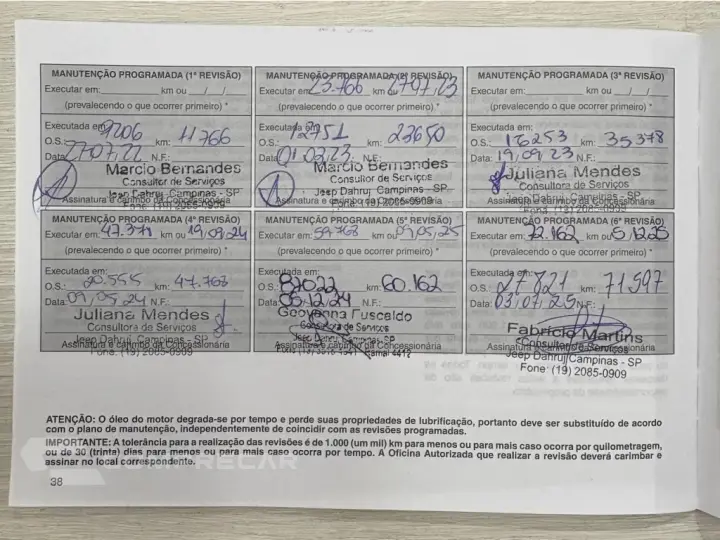 MANUTENÇÃO PROGRAMADA (1ª REVISÃO)
Executar em: km ou / /
(prevalecendo o que ocorrer primeiro) *
Executada em:
O.S.: 9206 km: 11766
Data: 27/07/22 N.F.:
Marcio Bernandes
Consultor de Serviços
Jeep Dahruj Campinas - SP
Assinatura e carimbo da Concessionária
Fone: (19) 2085-0909
MANUTENÇÃO PROGRAMADA (2ª REVISÃO)
Executar em: 23.766 km ou 27/07/23
(prevalecendo o que ocorrer primeiro) *
Executada em:
O.S.: 12751 km: 23650
Data: 01.02.23 N.F.:
Marcio Bernandes
Consultor de Serviços
Jeep Dahruj Campinas - SP
Assinatura e carimbo da Concessionária
Fone: (19) 2085-0909
MANUTENÇÃO PROGRAMADA (3ª REVISÃO)
Executar em: km ou / /
(prevalecendo o que ocorrer primeiro) *
Executada em:
O.S.: 16253 km: 35378
Data: 19/09/23 N.F.:
Juliana Mendes
Consultora de Serviços
Jeep Dahruj Campinas - SP
Assinatura e carimbo da Concessionária
Fone: (19) 2085-0909
MANUTENÇÃO PROGRAMADA (4ª REVISÃO)
Executar em: 47.371 km ou 19.09.24
(prevalecendo o que ocorrer primeiro) *
Executada em:
O.S.: 20.555 km: 47.763
Data: 09/05.24 N.F.:
Juliana Mendes
Consultora de Serviços
Jeep Dahruj Campinas - SP
Assinatura e carimbo da Concessionária
Fone: (19) 2085-0909
MANUTENÇÃO PROGRAMADA (5ª REVISÃO)
Executar em: 59.763 km ou 09/05/25
(prevalecendo o que ocorrer primeiro) *
Executada em:
O.S.: km: 60.162
Data: 05/12/24 N.F.:
Geovanna Fuscaldo
Consultora de Serviços
Jeep Dahruj Campinas - SP
Assinatura e carimbo da Concessionária
Ramal 4412
MANUTENÇÃO PROGRAMADA (6ª REVISÃO)
Executar em: 72.162 km ou 5.12.25
(prevalecendo o que ocorrer primeiro) *
Executada em:
O.S.: 27821 km: 71.597
Data: 03/07/25 N.F.:
Fabricio Martins
Consultor de Serviços
Assinatura e carimbo da Concessionária
Jeep Dahruj Campinas - SP
Fone: (19) 2085-0909
ATENÇÃO: O óleo do motor degrada-se por tempo e perde suas propriedades de lubrificação, portanto deve ser substituído de acordo
com o plano de manutenção, independentemente de coincidir com as revisões programadas.
IMPORTANTE: A tolerância para a realização das revisões é de 1.000 (um mil) km para menos ou para mais caso ocorra por quilometragem,
ou de 30 (trinta) dias para menos ou para mais caso ocorra por tempo. A Oficina Autorizada que realizar a revisão deverá carimbar e
assinar no local correspondente.
COMPRECAR
38